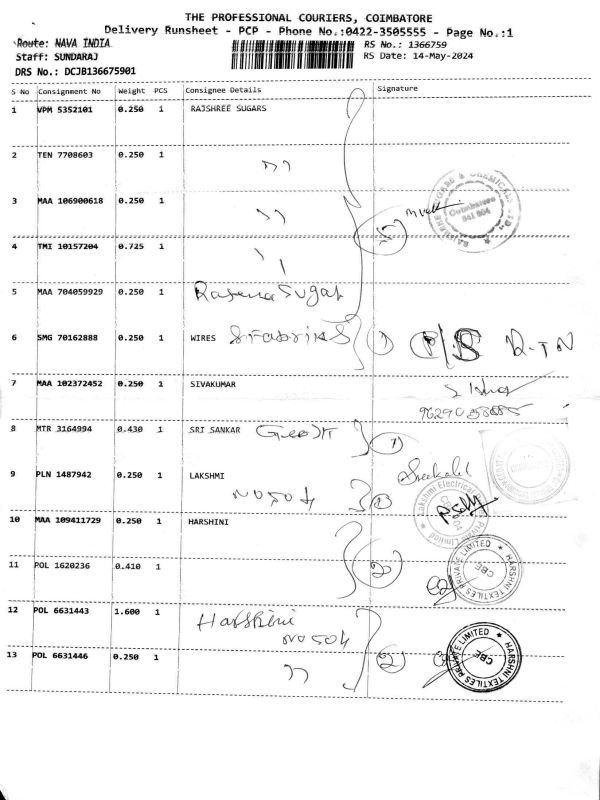 THE PROFESSIONAL COURIERS, COIMBATORE
Delivery Runsheet - PCP - Phone No.:0422-3505555 - Page No.:1
Route: NAVA INDIA
RS No.: 1366759
Staff: SUNDARAJ
RS Date: 14-May-2024
DRS No.: DCJB136675901
S No Consignment No Weight PCS Consignee Details Signature
1 VPM 5352101 0.250 1 RAJSHREE SUGARS
2 TEN 7708603 0.250 1 ״
3 MAA 106900618 0.250 1 ״
4 TMI 10157204 0.725 1 ״
Coimbatore
641 004
5 MAA 704059929 0.250 1 Sugar
6 SMG 70162888 0.250 1 WIRES & Fabriks 1
7 MAA 102372452 0.250 1 SIVAKUMAR
8 MTR 3164994 0.430 1 SRI SANKAR 1
9 PLN 1487942 0.250 1 LAKSHMI
No 504
Lakshmi Electrical Private Limited
10 MAA 109411729 0.250 1 HARSHINI
11 POL 1620236 0.410 1 2
HARSHNI TEXTILES PRIVATE LIMITED
CBE
12 POL 6631443 1.600 1 Harshini
No 504
13 POL 6631446 0.250 1 ״ 2
HARSHNI TEXTILES PRIVATE LIMITED
CBE